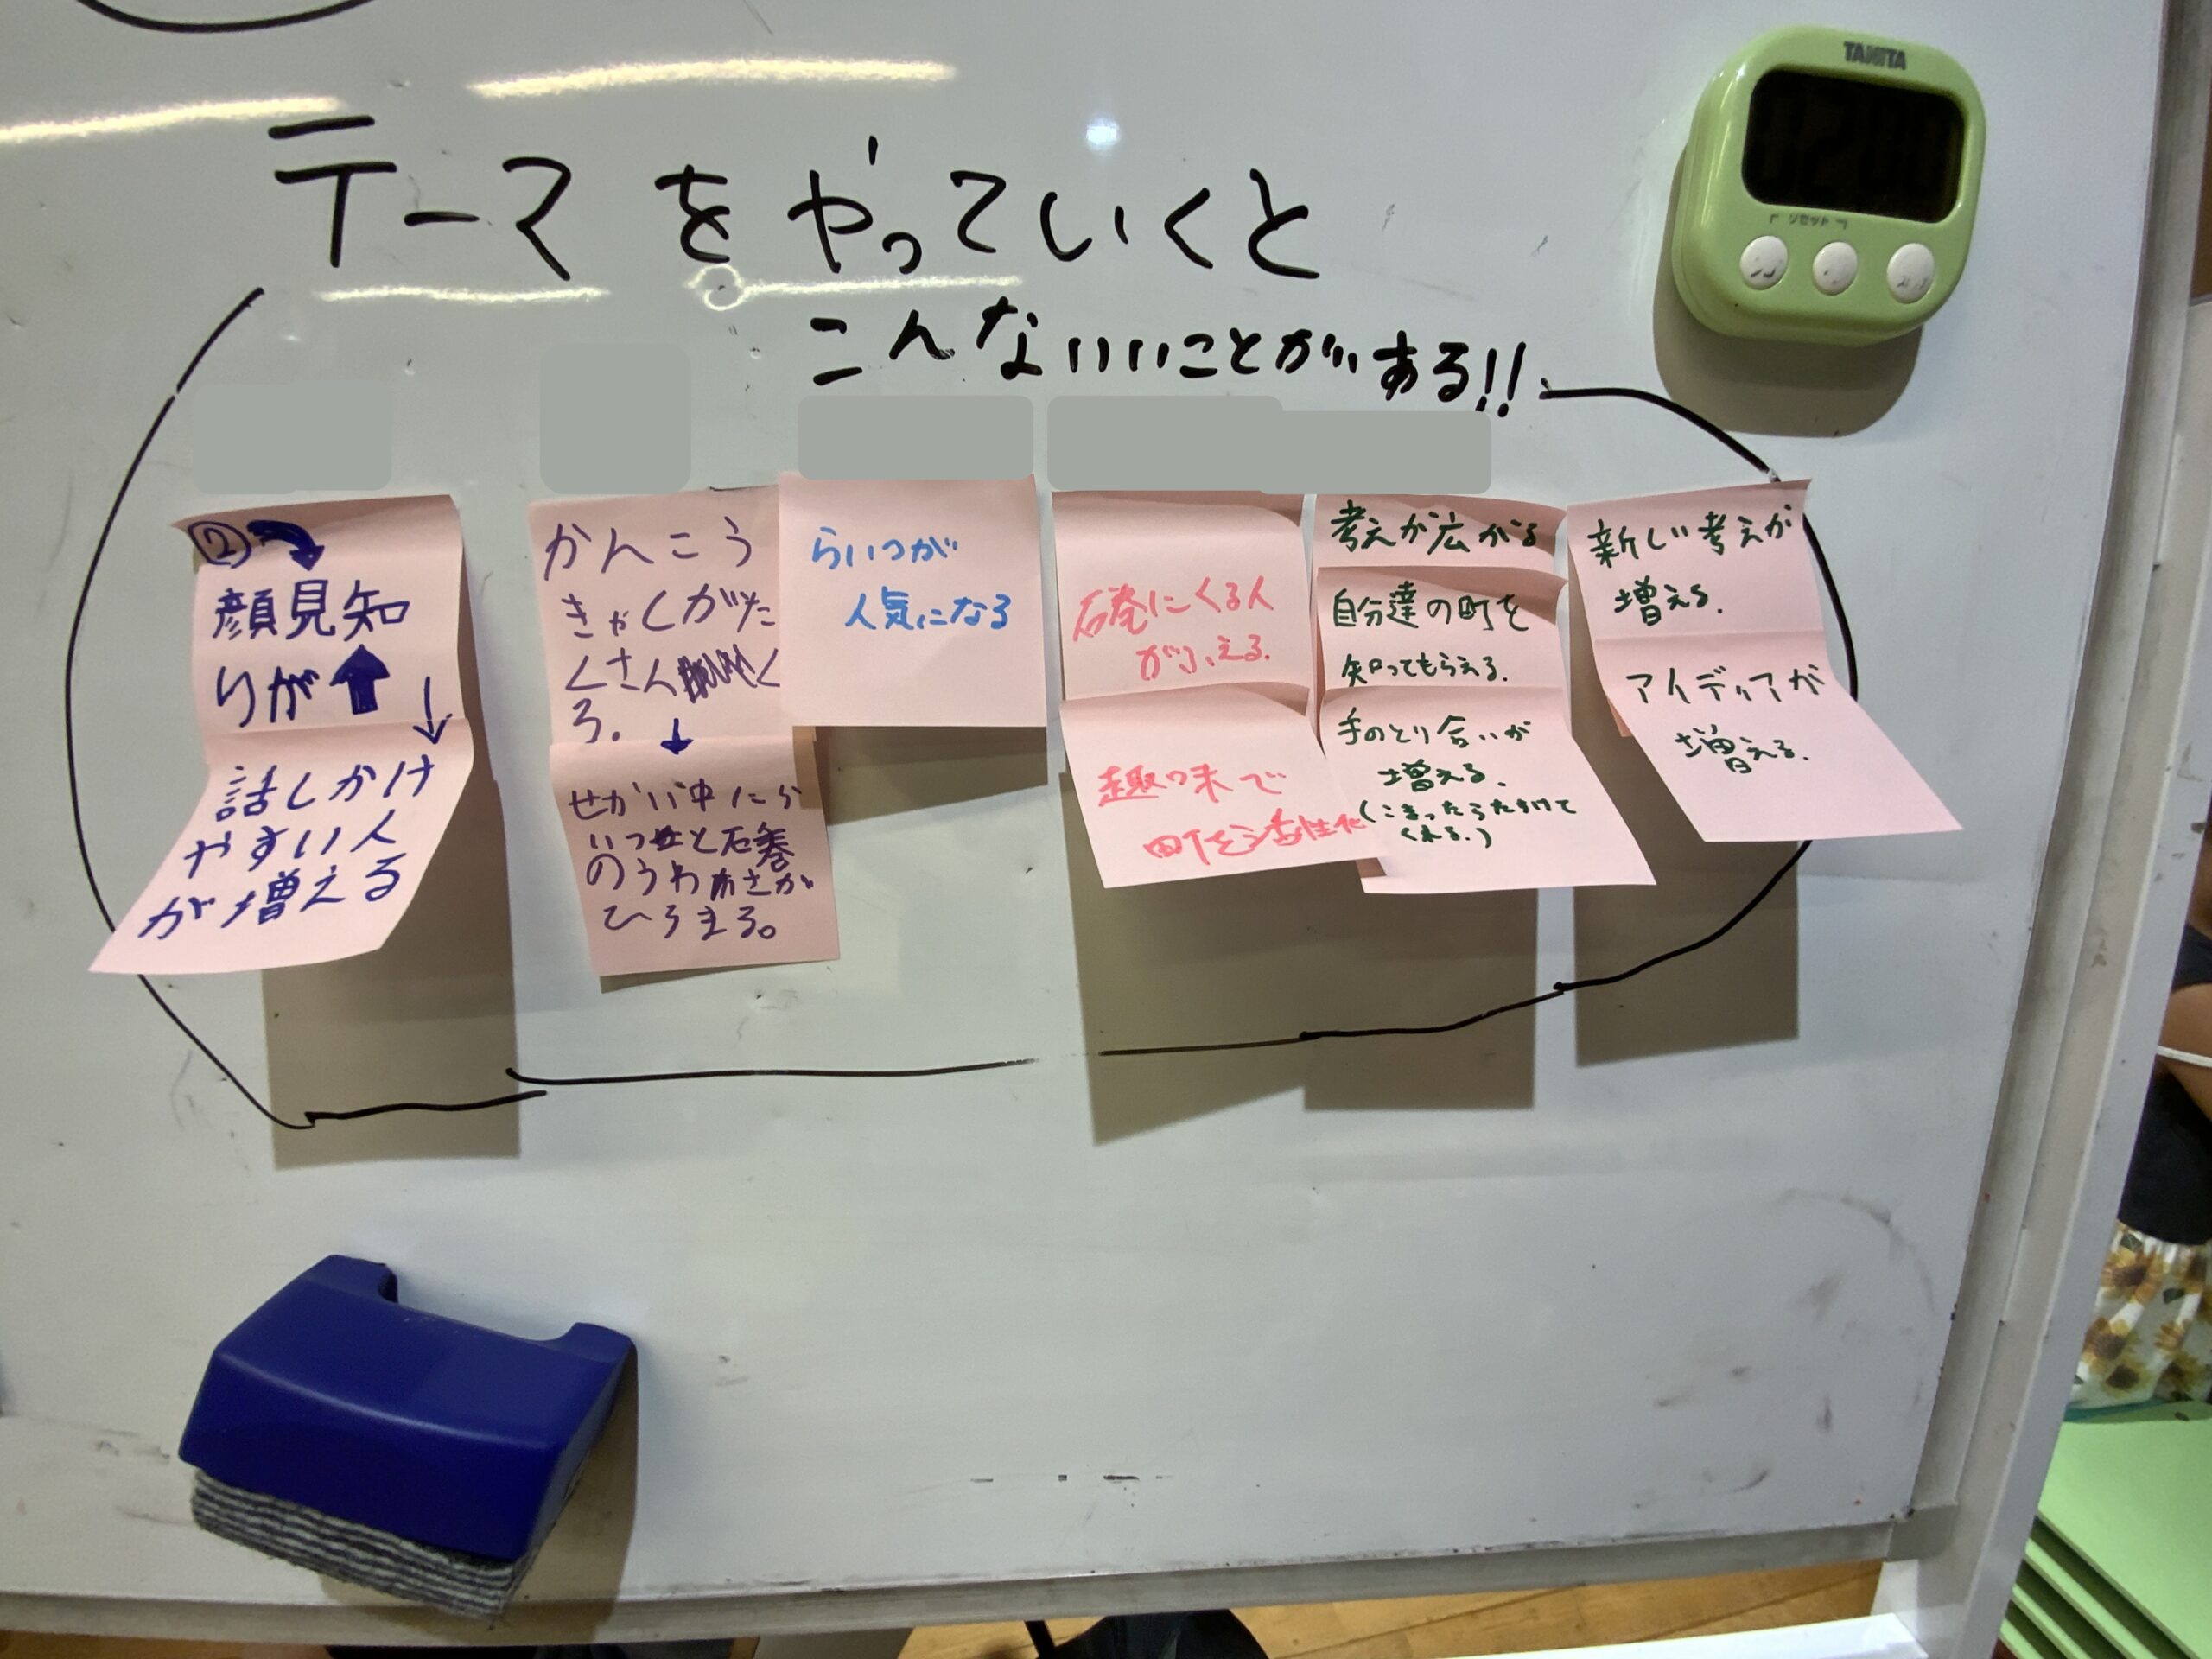 テーマをやっていくと
こんないいことがある!!
②
顔見知
りが
話しかけ
やすい人
が増える
かんこう
きゃくがた
くさんく
る。
せかい中にら
いつと石巻
のうわさが
ひろまる。
らいつが
人気になる
石巻にくる人
がふえる.
趣味で
町を活性化
考えが広がる
自分達の町を
知ってもらえる.
手のとり合いが
増える.
(こまったらたすけて
くれる.)
新しい考えが
増える.
アイディアが
増える.
TANITA
リセット